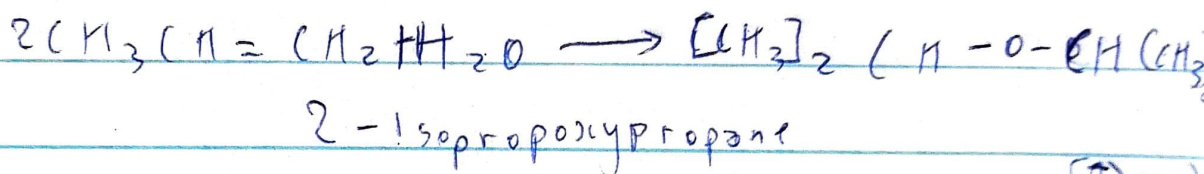 2CH₃CH=CH₂+H₂O ⟶ [CH₃]₂CH-O-CH(CH₃
2-Isopropoxypropane